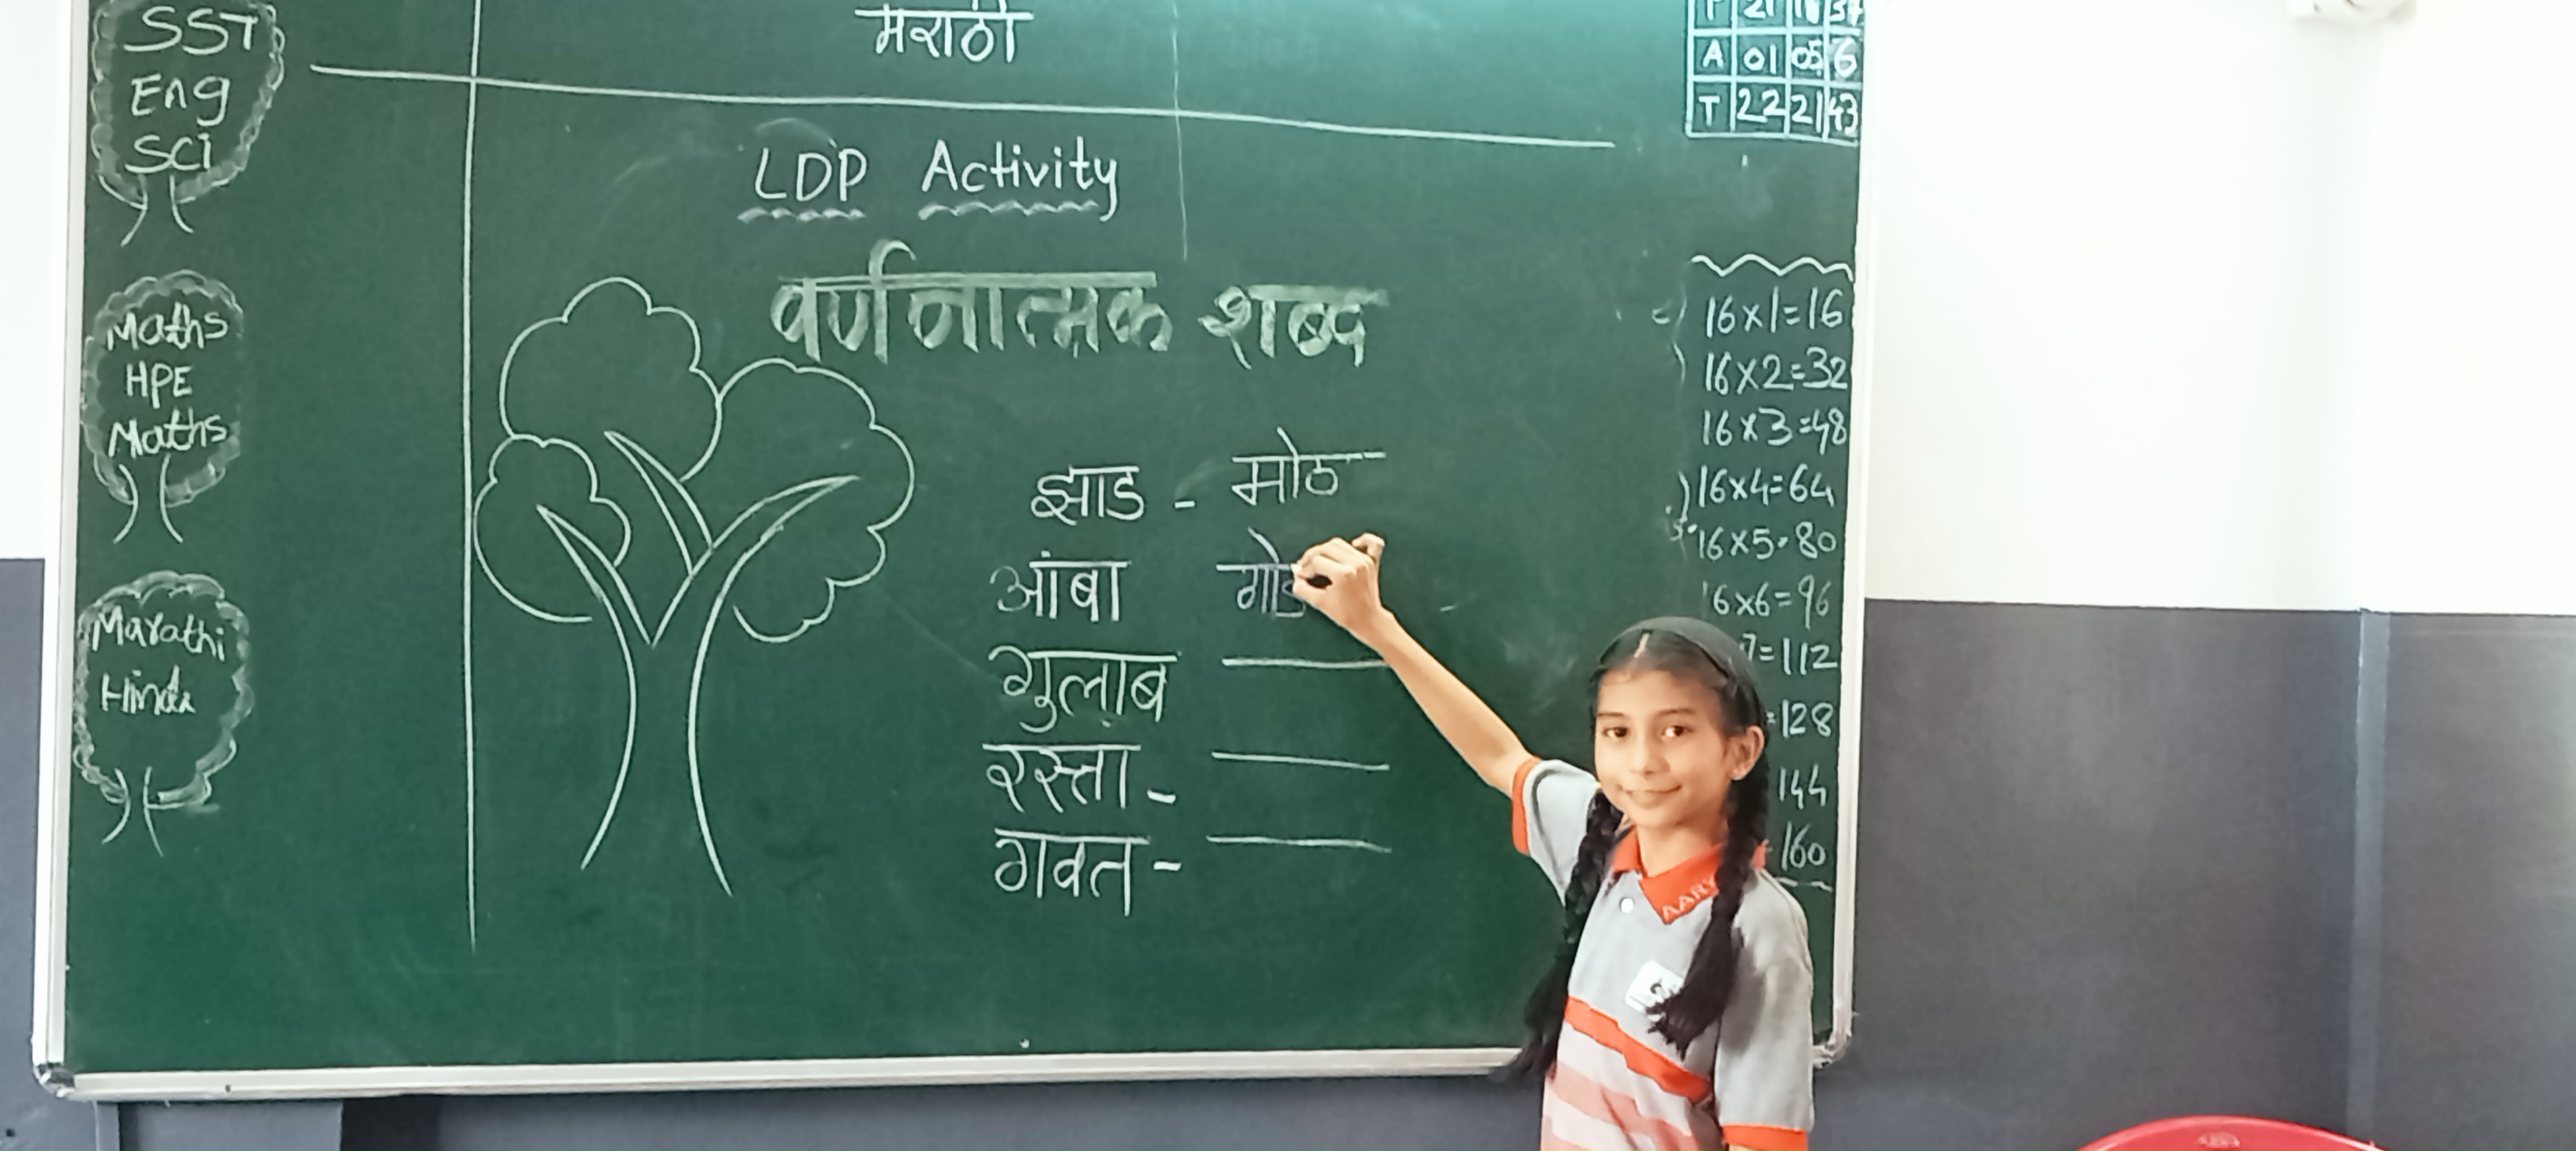 SST
Eng
SCI
Maths
HPE
Maths
Marathi
मराठी
LDP Activity
वर्णनात्मक शब्द
झाड - मोठ
आंबा गोड
गुलाब
रस्ता -
गवत -
A 01 05 6
T 22 21 43
16x1=16
16x2=32
16x3=48
16x4=64
16x5=80
6x6=96
7=112
=128
144
160
AARY